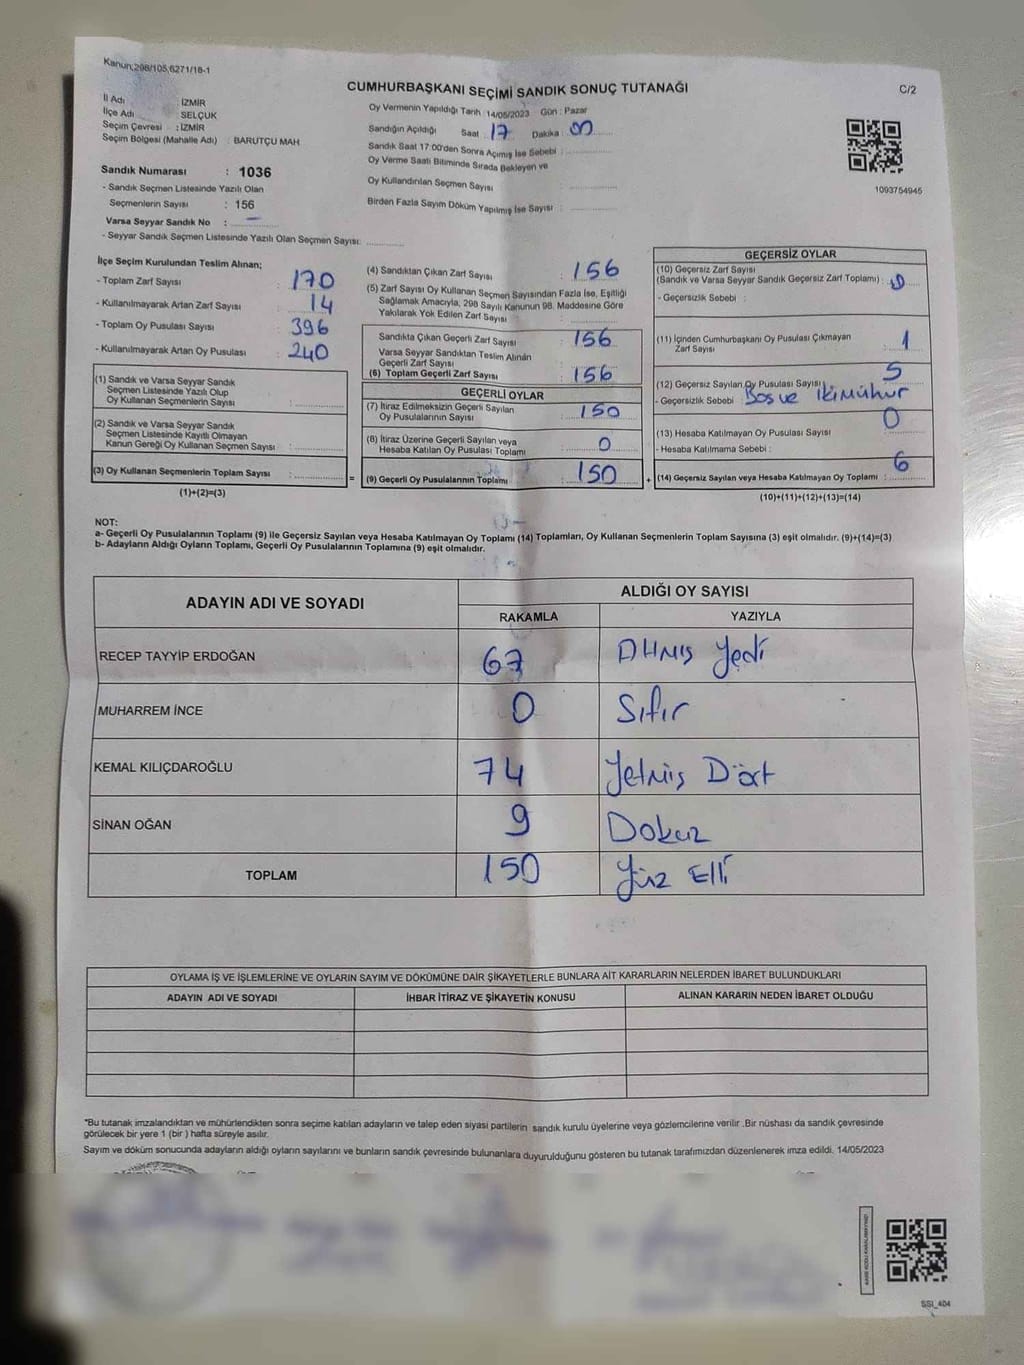 Kanun;298/105,6271/18-1
CUMHURBAŞKANI SEÇİMİ SANDIK SONUÇ TUTANAĞI
C/2
İl Adı : İZMİR
İlçe Adı : SELÇUK
Seçim Çevresi : İZMİR
Seçim Bölgesi (Mahalle Adı) : BARUTÇU MAH
Sandık Numarası : 1036
- Sandık Seçmen Listesinde Yazılı Olan
Seçmenlerin Sayısı : 156
Varsa Seyyar Sandık No : —
- Seyyar Sandık Seçmen Listesinde Yazılı Olan Seçmen Sayısı: ............
Oy Vermenin Yapıldığı Tarih :14/05/2023 Gün : Pazar
Sandığın Açıldığı Saat : 17 Dakika :
Sandık Saat 17:00'den Sonra Açımış İse Sebebi : ............
Oy Verme Saati Bitiminde Sırada Bekleyen ve
Oy Kullandırılan Seçmen Sayısı : ............
Birden Fazla Sayım Döküm Yapılmış İse Sayısı : ............
1093754945
İlçe Seçim Kurulundan Teslim Alınan;
- Toplam Zarf Sayısı : 170
- Kullanılmayarak Artan Zarf Sayısı : 14
- Toplam Oy Pusulası Sayısı : 396
- Kullanılmayarak Artan Oy Pusulası : 240
(1) Sandık ve Varsa Seyyar Sandık
Seçmen Listesinde Yazılı Olup
Oy Kullanan Seçmenlerin Sayısı : ............
(2) Sandık ve Varsa Seyyar Sandık
Seçmen Listesinde Kayıtlı Olmayan
Kanun Gereği Oy Kullanan Seçmen Sayısı : ............
(3) Oy Kullanan Seçmenlerin Toplam Sayısı : ............ =
(1)+(2)=(3)
(4) Sandıktan Çıkan Zarf Sayısı : 156
(5) Zarf Sayısı Oy Kullanan Seçmen Sayısından Fazla İse, Eşitliği
Sağlamak Amacıyla, 298 Sayılı Kanunun 98. Maddesine Göre
Yakılarak Yok Edilen Zarf Sayısı : ............
Sandıkta Çıkan Geçerli Zarf Sayısı : 156
Varsa Seyyar Sandıktan Teslim Alınan
Geçerli Zarf Sayısı
(6) Toplam Geçerli Zarf Sayısı : 156
GEÇERLİ OYLAR
(7) İtiraz Edilmeksizin Geçerli Sayılan
Oy Pusulalarının Sayısı : 150
(8) İtiraz Üzerine Geçerli Sayılan veya
Hesaba Katılan Oy Pusulası Toplamı : 0
(9) Geçerli Oy Pusulalarının Toplamı : 150 +
GEÇERSİZ OYLAR
(10) Geçersiz Zarf Sayısı
(Sandık ve Varsa Seyyar Sandık Geçersiz Zarf Toplamı) :
- Geçersizlik Sebebi :
(11) İçinden Cumhurbaşkanı Oy Pusulası Çıkmayan
Zarf Sayısı : 1
(12) Geçersiz Sayılan Oy Pusulası Sayısı : 5
- Geçersizlik Sebebi : Bos ve İkimühür
(13) Hesaba Katılmayan Oy Pusulası Sayısı : 0
- Hesaba Katılmama Sebebi :
(14) Geçersiz Sayılan veya Hesaba Katılmayan Oy Toplamı : 6
(10)+(11)+(12)+(13)=(14)
NOT:
a- Geçerli Oy Pusulalarının Toplamı (9) ile Geçersiz Sayılan veya Hesaba Katılmayan Oy Toplamı (14) Toplamları, Oy Kullanan Seçmenlerin Toplam Sayısına (3) eşit olmalıdır. (9)+(14)=(3)
b- Adayların Aldığı Oyların Toplamı, Geçerli Oy Pusulalarının Toplamına (9) eşit olmalıdır.
ADAYIN ADI VE SOYADI
ALDIĞI OY SAYISI
RAKAMLA YAZIYLA
RECEP TAYYİP ERDOĞAN 67 Altmış yedi
MUHARREM İNCE 0 Sıfır
KEMAL KILIÇDAROĞLU 74 Yetmiş Dört
SİNAN OĞAN 9 Dokuz
TOPLAM 150 Yüz Elli
OYLAMA İŞ VE İŞLEMLERİNE VE OYLARIN SAYIM VE DÖKÜMÜNE DAİR ŞİKAYETLERLE BUNLARA AİT KARARLARIN NELERDEN İBARET BULUNDUKLARI
ADAYIN ADI VE SOYADI İHBAR İTİRAZ VE ŞİKAYETİN KONUSU ALINAN KARARIN NEDEN İBARET OLDUĞU
*Bu tutanak imzalandıktan ve mühürlendikten sonra seçime katılan adayların ve talep eden siyasi partilerin sandık kurulu üyelerine veya gözlemcilerine verilir .Bir nüshası da sandık çevresinde
görülecek bir yere 1 (bir ) hafta süreyle asılır.
Sayım ve döküm sonucunda adayların aldığı oyların sayılarını ve bunların sandık çevresinde bulunanlara duyurulduğunu gösteren bu tutanak tarafımızdan düzenlenerek imza edildi. 14/05/2023
SSI_404